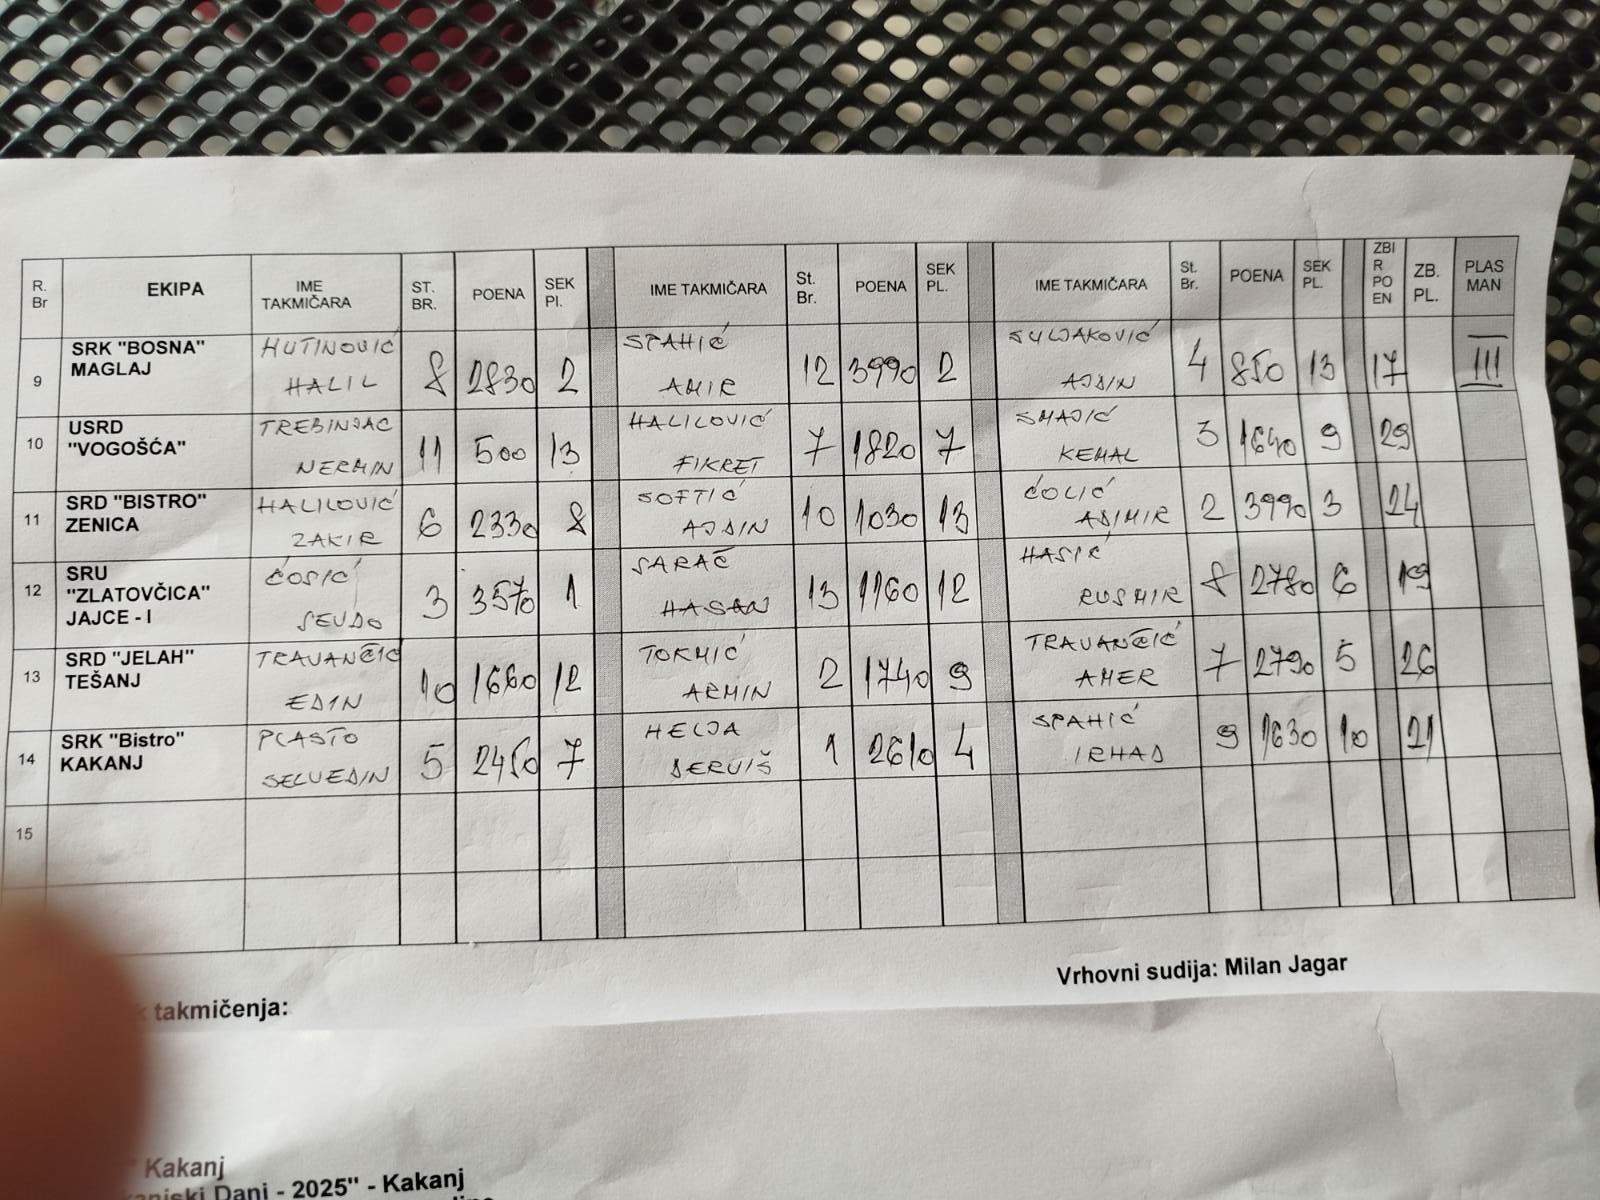 R. Br EKIPA IME TAKMIČARA ST. BR. POENA SEK Pl. IME TAKMIČARA St. Br. POENA SEK PL. IME TAKMIČARA St. Br. POENA SEK PL. ZBI R PO EN ZB. PL. PLAS MAN
9 SRK "BOSNA" MAGLAJ HUTINOVIĆ HALIL 8 2830 2 SPAHIĆ AMIR 12 3990 2 SULJAKOVIĆ AJDIN 4 850 13 17 III
10 USRD "VOGOŠĆA" TREBINJAC NERMIN 11 500 13 HALILOVIĆ FIKRET 7 1820 7 SMAJIĆ KEMAL 3 1640 9 29
11 SRD "BISTRO" ZENICA HALILOVIĆ ZAKIR 6 2330 8 SOFTIĆ AJDIN 10 1030 13 ĆOLIĆ ADIMIR 2 3990 3 24
12 SRU "ZLATOVČICA" JAJCE - I ĆOSIĆ SEUDO 3 3570 1 SARAČ HASAN 13 1160 12 HASIĆ RUSMIR 8 2780 6 19
13 SRD "JELAH" TEŠANJ TRAVANČIĆ EDIN 10 1660 12 TOKMIĆ ARMIN 2 1740 9 TRAVANČIĆ AMER 7 2790 5 26
14 SRK "Bistro" KAKANJ PLASTO SELVEDIN 5 2450 7 HELJA DERVIŠ 1 2610 4 SPAHIĆ IRHAD 9 1630 10 21
15
takmičenja:
Vrhovni sudija: Milan Jagar
" Kakanj
Dani - 2025" - Kakanj